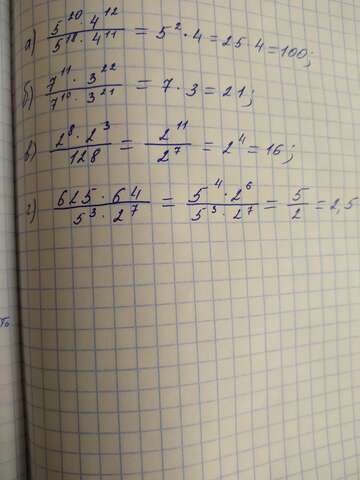 а) (5^20 · 4^12)/(5^18 · 4^11) = 5^2 · 4 = 25 · 4 = 100;
б) (7^11 · 3^22)/(7^10 · 3^21) = 7 · 3 = 21;
в) (2^8 · 2^3)/128 = 2^11/2^7 = 2^4 = 16;
г) (625 · 64)/(5^3 · 2^7) = (5^4 · 2^6)/(5^3 · 2^7) = 5/2 = 2,5